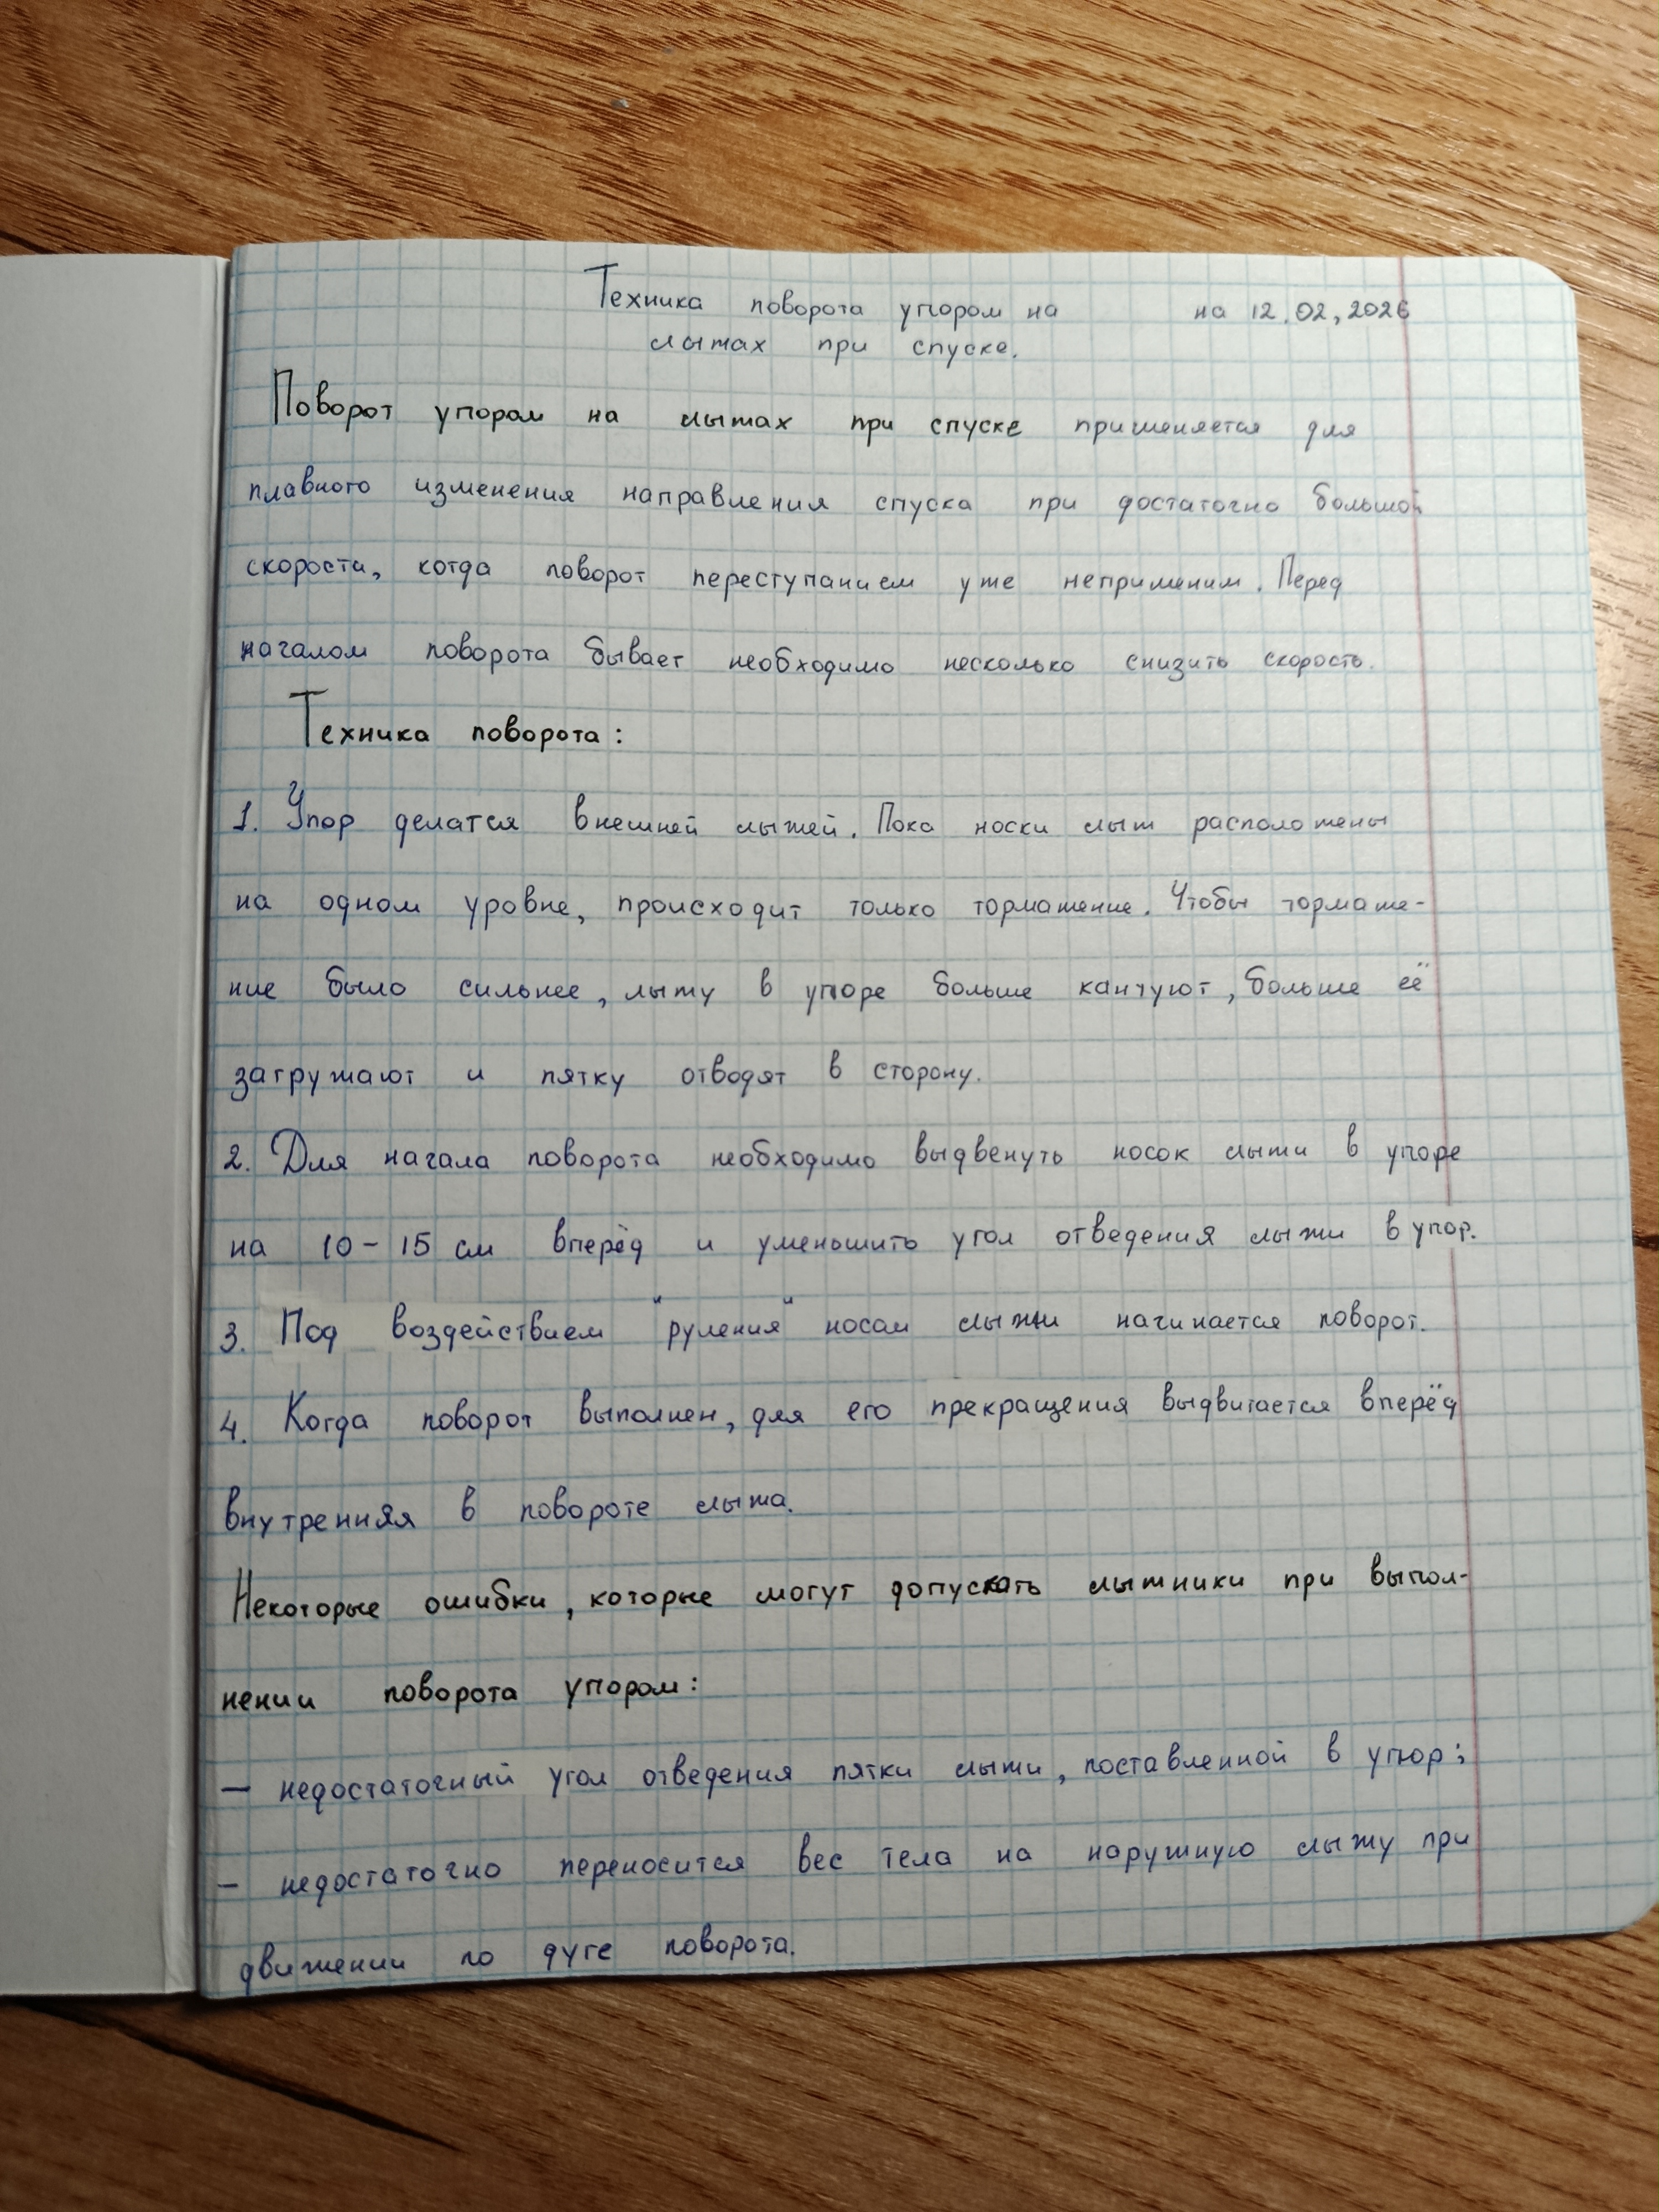 Техника поворота упором на на 12.02.2026
лыжах при спуске.
Поворот упором на лыжах при спуске применяется для
плавного изменения направления спуска при достаточно большой
скорости, когда поворот переступанием уже неприменим. Перед
началом поворота бывает необходимо несколько снизить скорость.
Техника поворота:
1. Упор делатся внешней лыжей. Пока носки лыж расположены
на одном уровне, происходит только торможение. Чтобы торможе-
ние было сильнее, лыжу в упоре больше кантуют, больше её
загружают и пятку отводят в сторону.
2. Для начала поворота необходимо выдвенуть носок лыжи в упоре
на 10-15 см вперёд и уменьшить угол отведения лыжи в упор.
3. Под воздействием "руления" носом лыжи начинается поворот.
4. Когда поворот выполнен, для его прекращения выдвигается вперёд
внутренняя в повороте лыжа.
Некоторые ошибки, которые могут допускать лыжники при выпол-
нении поворота упором:
— недостаточный угол отведения пятки лыжи, поставленной в упор;
— недостаточно переносится вес тела на наружную лыжу при
движении по дуге поворота.